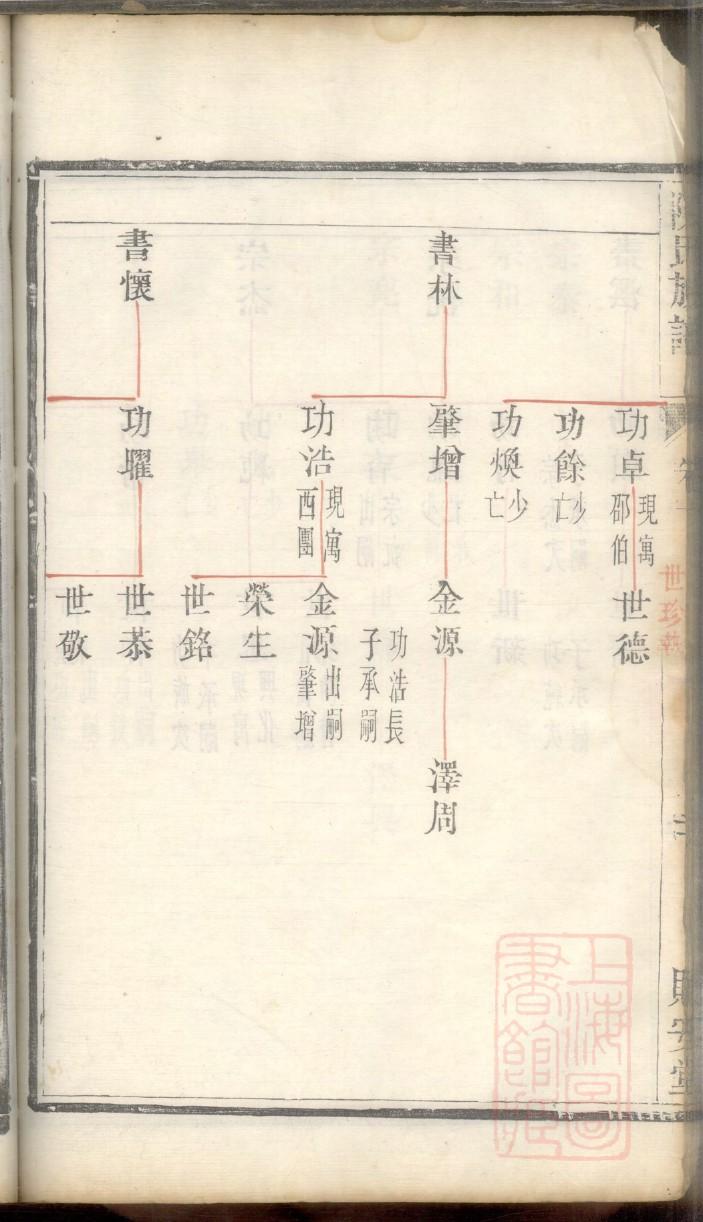 氏族譜
卷一
功卓
現寓
邵伯
世德
功餘
少
亡
功煥
少
亡
書林
肇增
金源
功浩長
子承嗣
澤周
功浩
現寓
西團
金源
出嗣
肇增
榮生
世銘
書懷
功曜
世恭
世敬
上海圖
書館藏